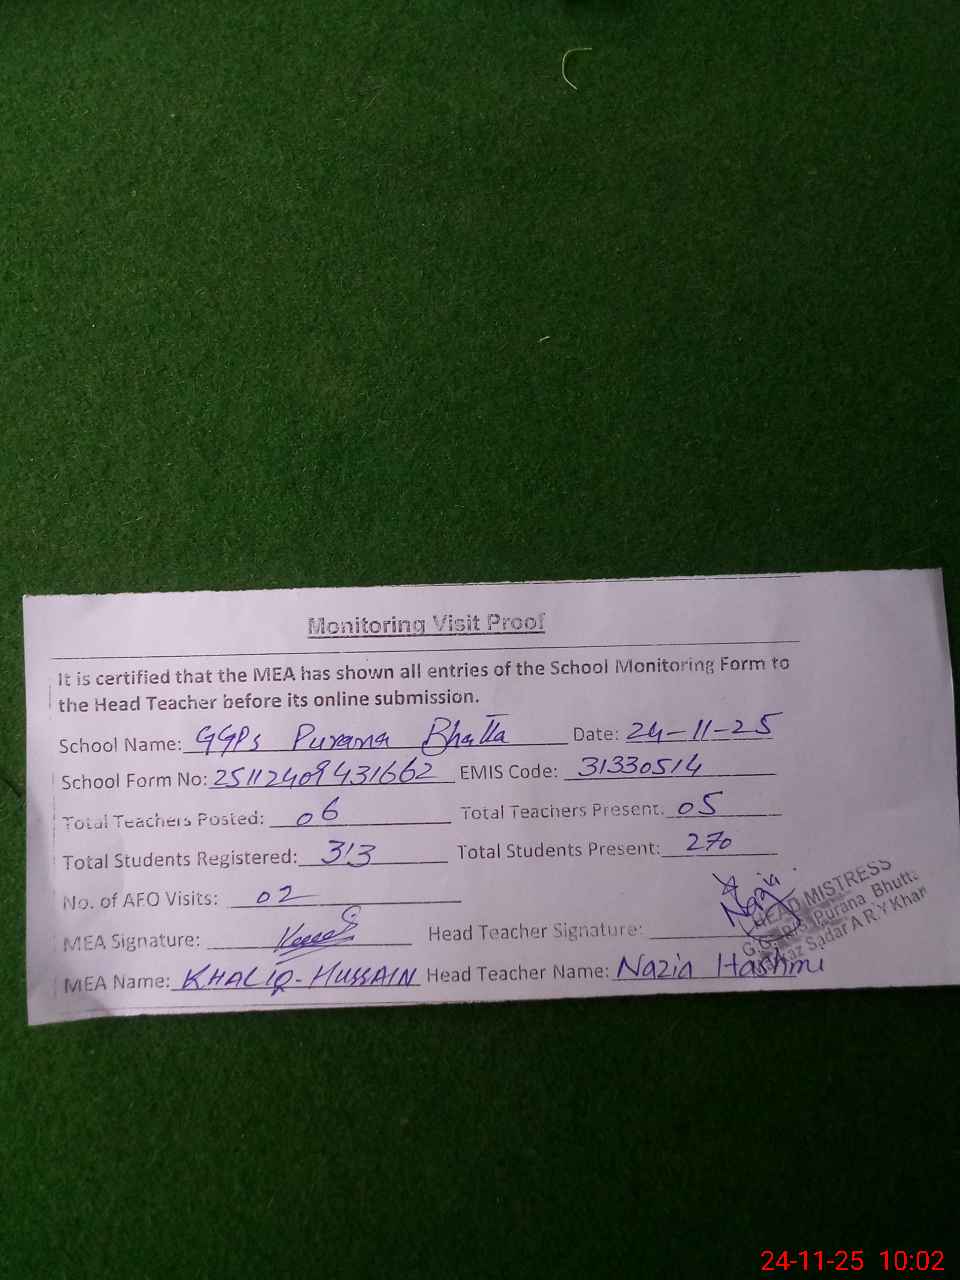 Monitoring Visit Proof
It is certified that the MEA has shown all entries of the School Monitoring Form to
the Head Teacher before its online submission.
School Name: GGPS Purana Bhatta Date: 24-11-25
School Form No: 25112409431662 EMIS Code: 31330514
Total Teachers Posted: 06 Total Teachers Present: 05
Total Students Registered: 313 Total Students Present: 270
No. of AEO Visits: 02
MEA Signature: Head Teacher Signature: Nazia
HEAD MISTRESS
G.G.P.S Purana Bhutta
Markaz Sadar A R.Y Khan
MEA Name: KHALIQ-HUSSAIN Head Teacher Name: Nazia Hashmi
24-11-25 10:02